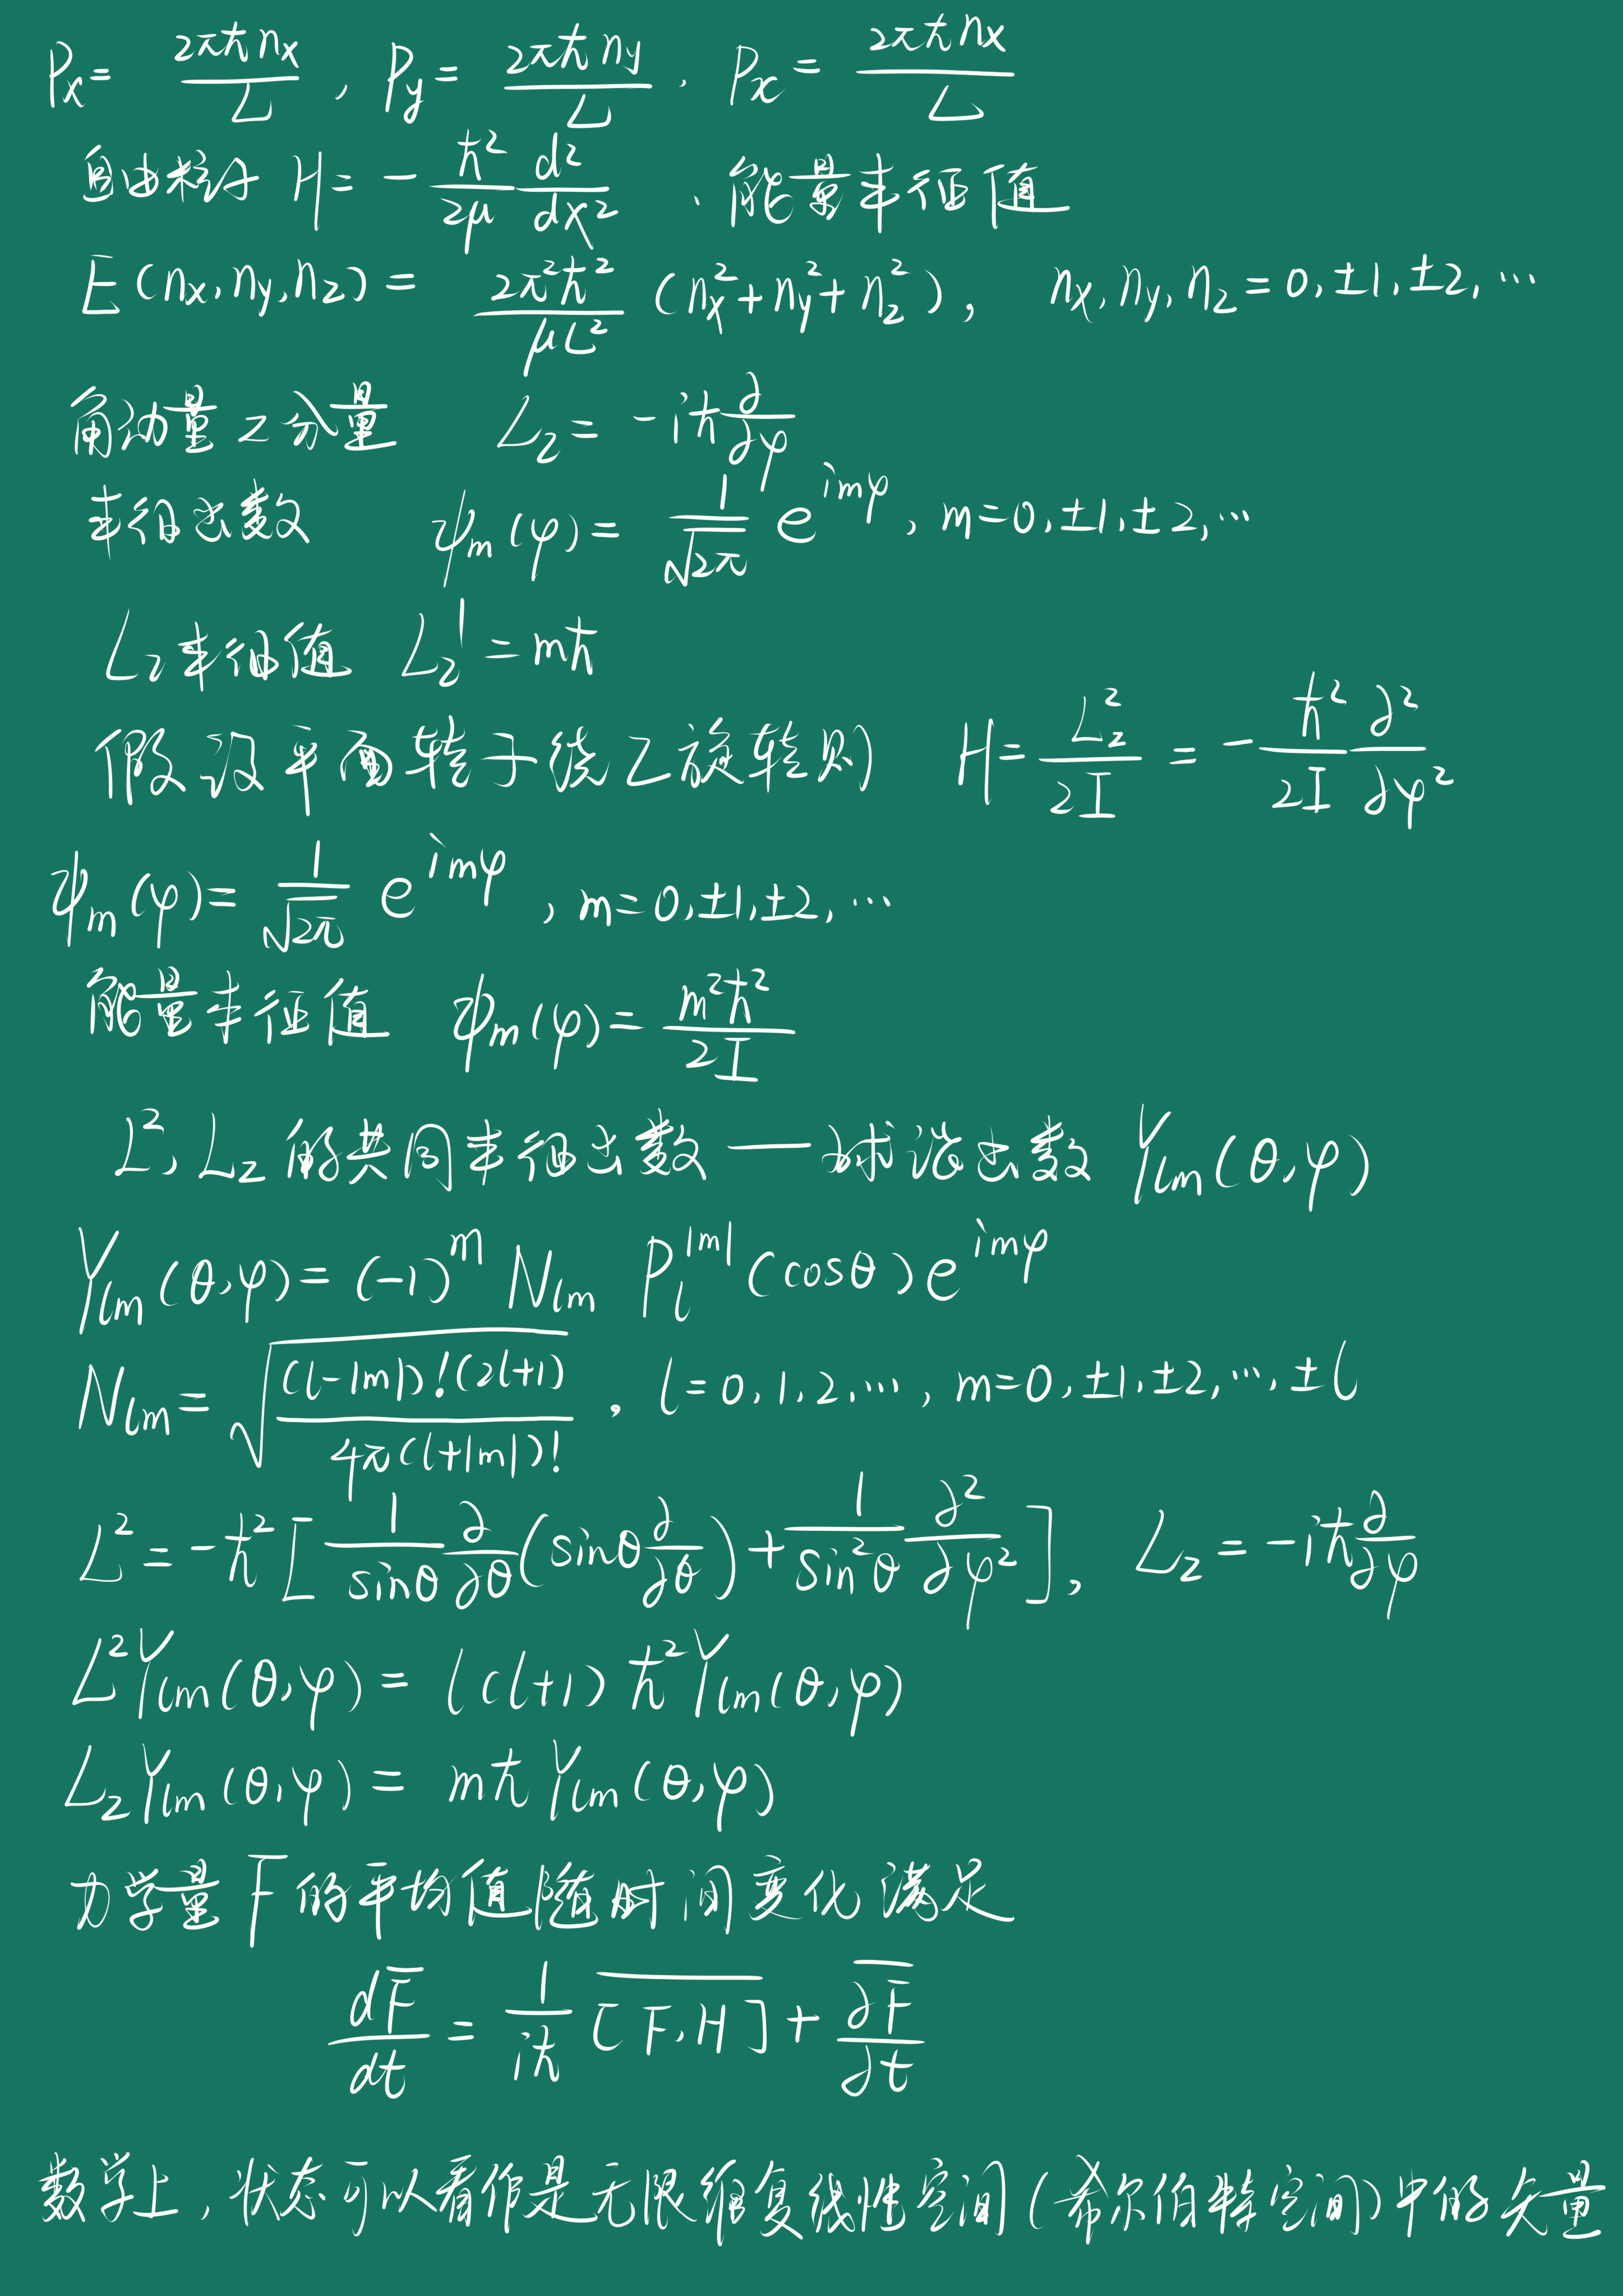 Px = 2πħnx/L , Py = 2πħny/L , Px = 2πħnx/L
自由粒子 H = -ħ²/2μ d²/dx² 、能量本征值
E(nx, ny, nz) = 2π²ħ²/μL² (nx² + ny² + nz²), nx, ny, nz = 0, ±1, ±2, …
角动量z分量 Lz = -iħ ∂/∂φ
本征函数 ψm(φ) = 1/√2π e^{imφ}, m = 0, ±1, ±2, …
Lz本征值 Lz' = mħ
假设平面转子绕Z旋转则 H = Lz²/2I = -ħ²/2I ∂²/∂φ²
ψm(φ) = 1/√2π e^{imφ} , m = 0, ±1, ±2, …
能量本征值 ψm(φ) = m²ħ²/2I
L², Lz 的共同本征函数——球谐函数 Ylm(θ,φ)
Ylm(θ,φ) = (-1)^m Nlm Pl^{|m|}(cosθ) e^{imφ}
Nlm = √((l-|m|)!(2l+1)/4π(l+|m|)!) , l = 0, 1, 2, … , m = 0, ±1, ±2, …, ±l
L² = -ħ² [1/sinθ ∂/∂θ (sinθ ∂/∂θ) + 1/sin²θ ∂²/∂φ²], Lz = -iħ ∂/∂φ
L²Ylm(θ,φ) = l(l+1) ħ² Ylm(θ,φ)
LzYlm(θ,φ) = mħ Ylm(θ,φ)
力学量F的平均值随时间变化满足
dF̅/dt = 1/iħ \overline{[F, H]} + \overline{∂F̅/∂t}
数学上,状态可以看作是无限维复线性空间(希尔伯特空间)中的矢量